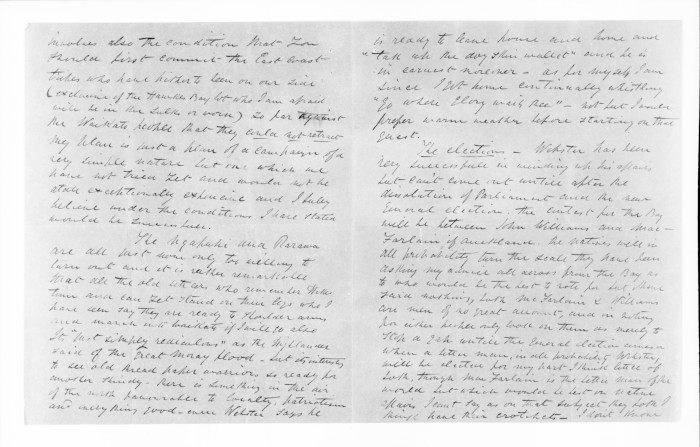 involves also the condition that you
should first commit the East Coast
tribes who have hitherto been on our side
(exclusive of the Hawkes Bay lot who I am afraid
will be in the sulks or worse) so far against
the Waikato people that they could not retract
my plan is just a plan of a campaign of a
very simple nature but one which we
have not tried yet and would not be
at all exceptionally expensive and I fully
believe under the conditions I have stated
would be successful.
The Ngapuhi and Rarawa
are all just now only too willing to
turn out and it is rather remarkable
that all the old fellows who remember
time and can yet stand on their legs who I
have seen say they are ready to shoulder arms
and march into Waikato if I will go also
It just simply redemlous" as the Highlander
said of the great Moray flood - but it's interesting
to see old bread paper warriors so ready for
another shindy. Here is something in the air
of the north favourable to loyalty, patriotism
and everything good - even Webster says he
is ready to leave house and home and
"talk up the day skin wallet" and he is
in earnest moreover - as for myself I am
since I got home continually whistling
"Go where Glory waits thee" - not but I would
prefer warm weather before starting on that
quest.
The elections - Webster has been
very successful in winding up his affairs
but can't come out until after the
dissolution of Parliament and the new
General election. The contest for the Bay
will be between John Williams and Mac-
Farlain of Auckland. The natives will in
all probability turn the scale they have been
asking my advice all across from the Bay as
to who would be the best to vote for but I have
said nothing, both McFarlain & Williams
are men of no great amount, and in voting
for either they only look on them as merely to
stop a gap until the General election comes on
when a better man, in all probability Webster,
will be elected for my part I think little of
both, though MacFarlain is the better man of the
world but which would be best on native
affairs I can't say as on that subject they both I
think have their crotchets - I don't know